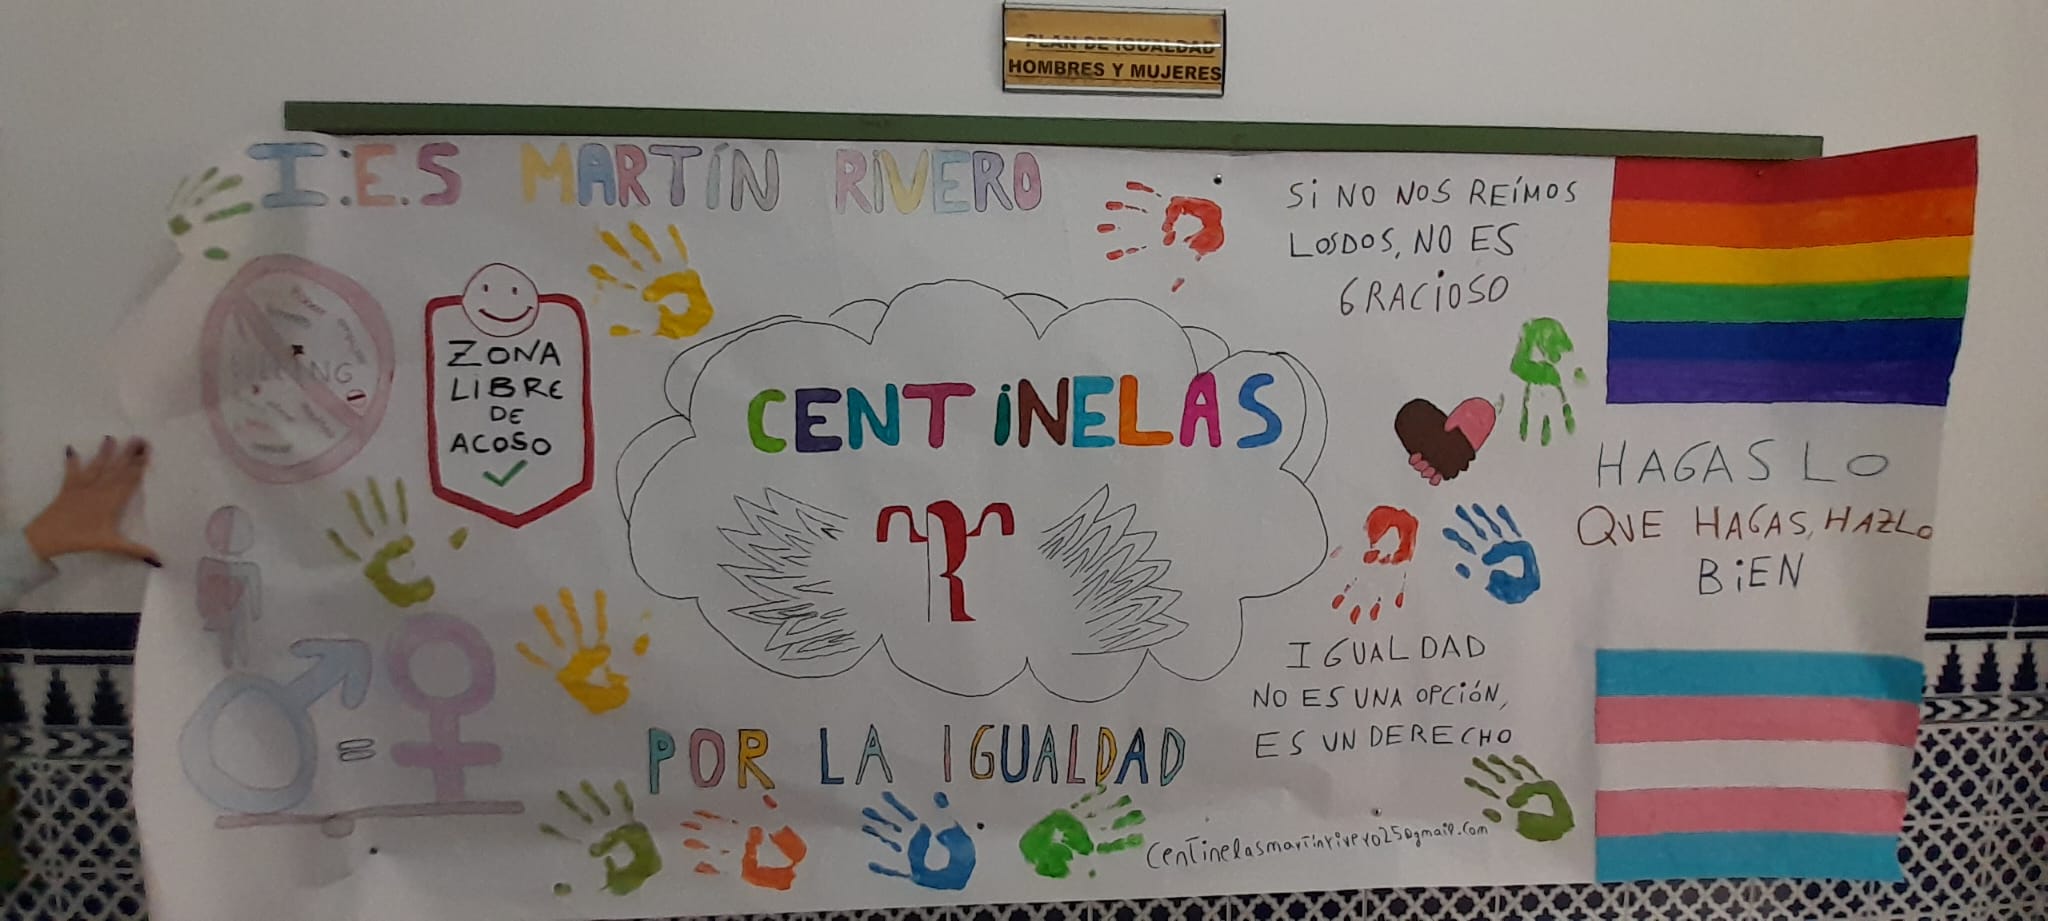 PLAN DE IGUALDAD
HOMBRES Y MUJERES
I.E.S MARTÍN RIVERO
SI NO NOS REÍMOS
LOSDOS, NO ES
GRACIOSO
ZONA
LIBRE
DE
ACOSO
CENTINELAS
HAGAS LO
QUE HAGAS, HAZLO
BIEN
IGUALDAD
NO ES UNA OPCIÓN,
ES UN DERECHO
=
POR LA IGUALDAD
Centinelasmartinrivero25@gmail.com